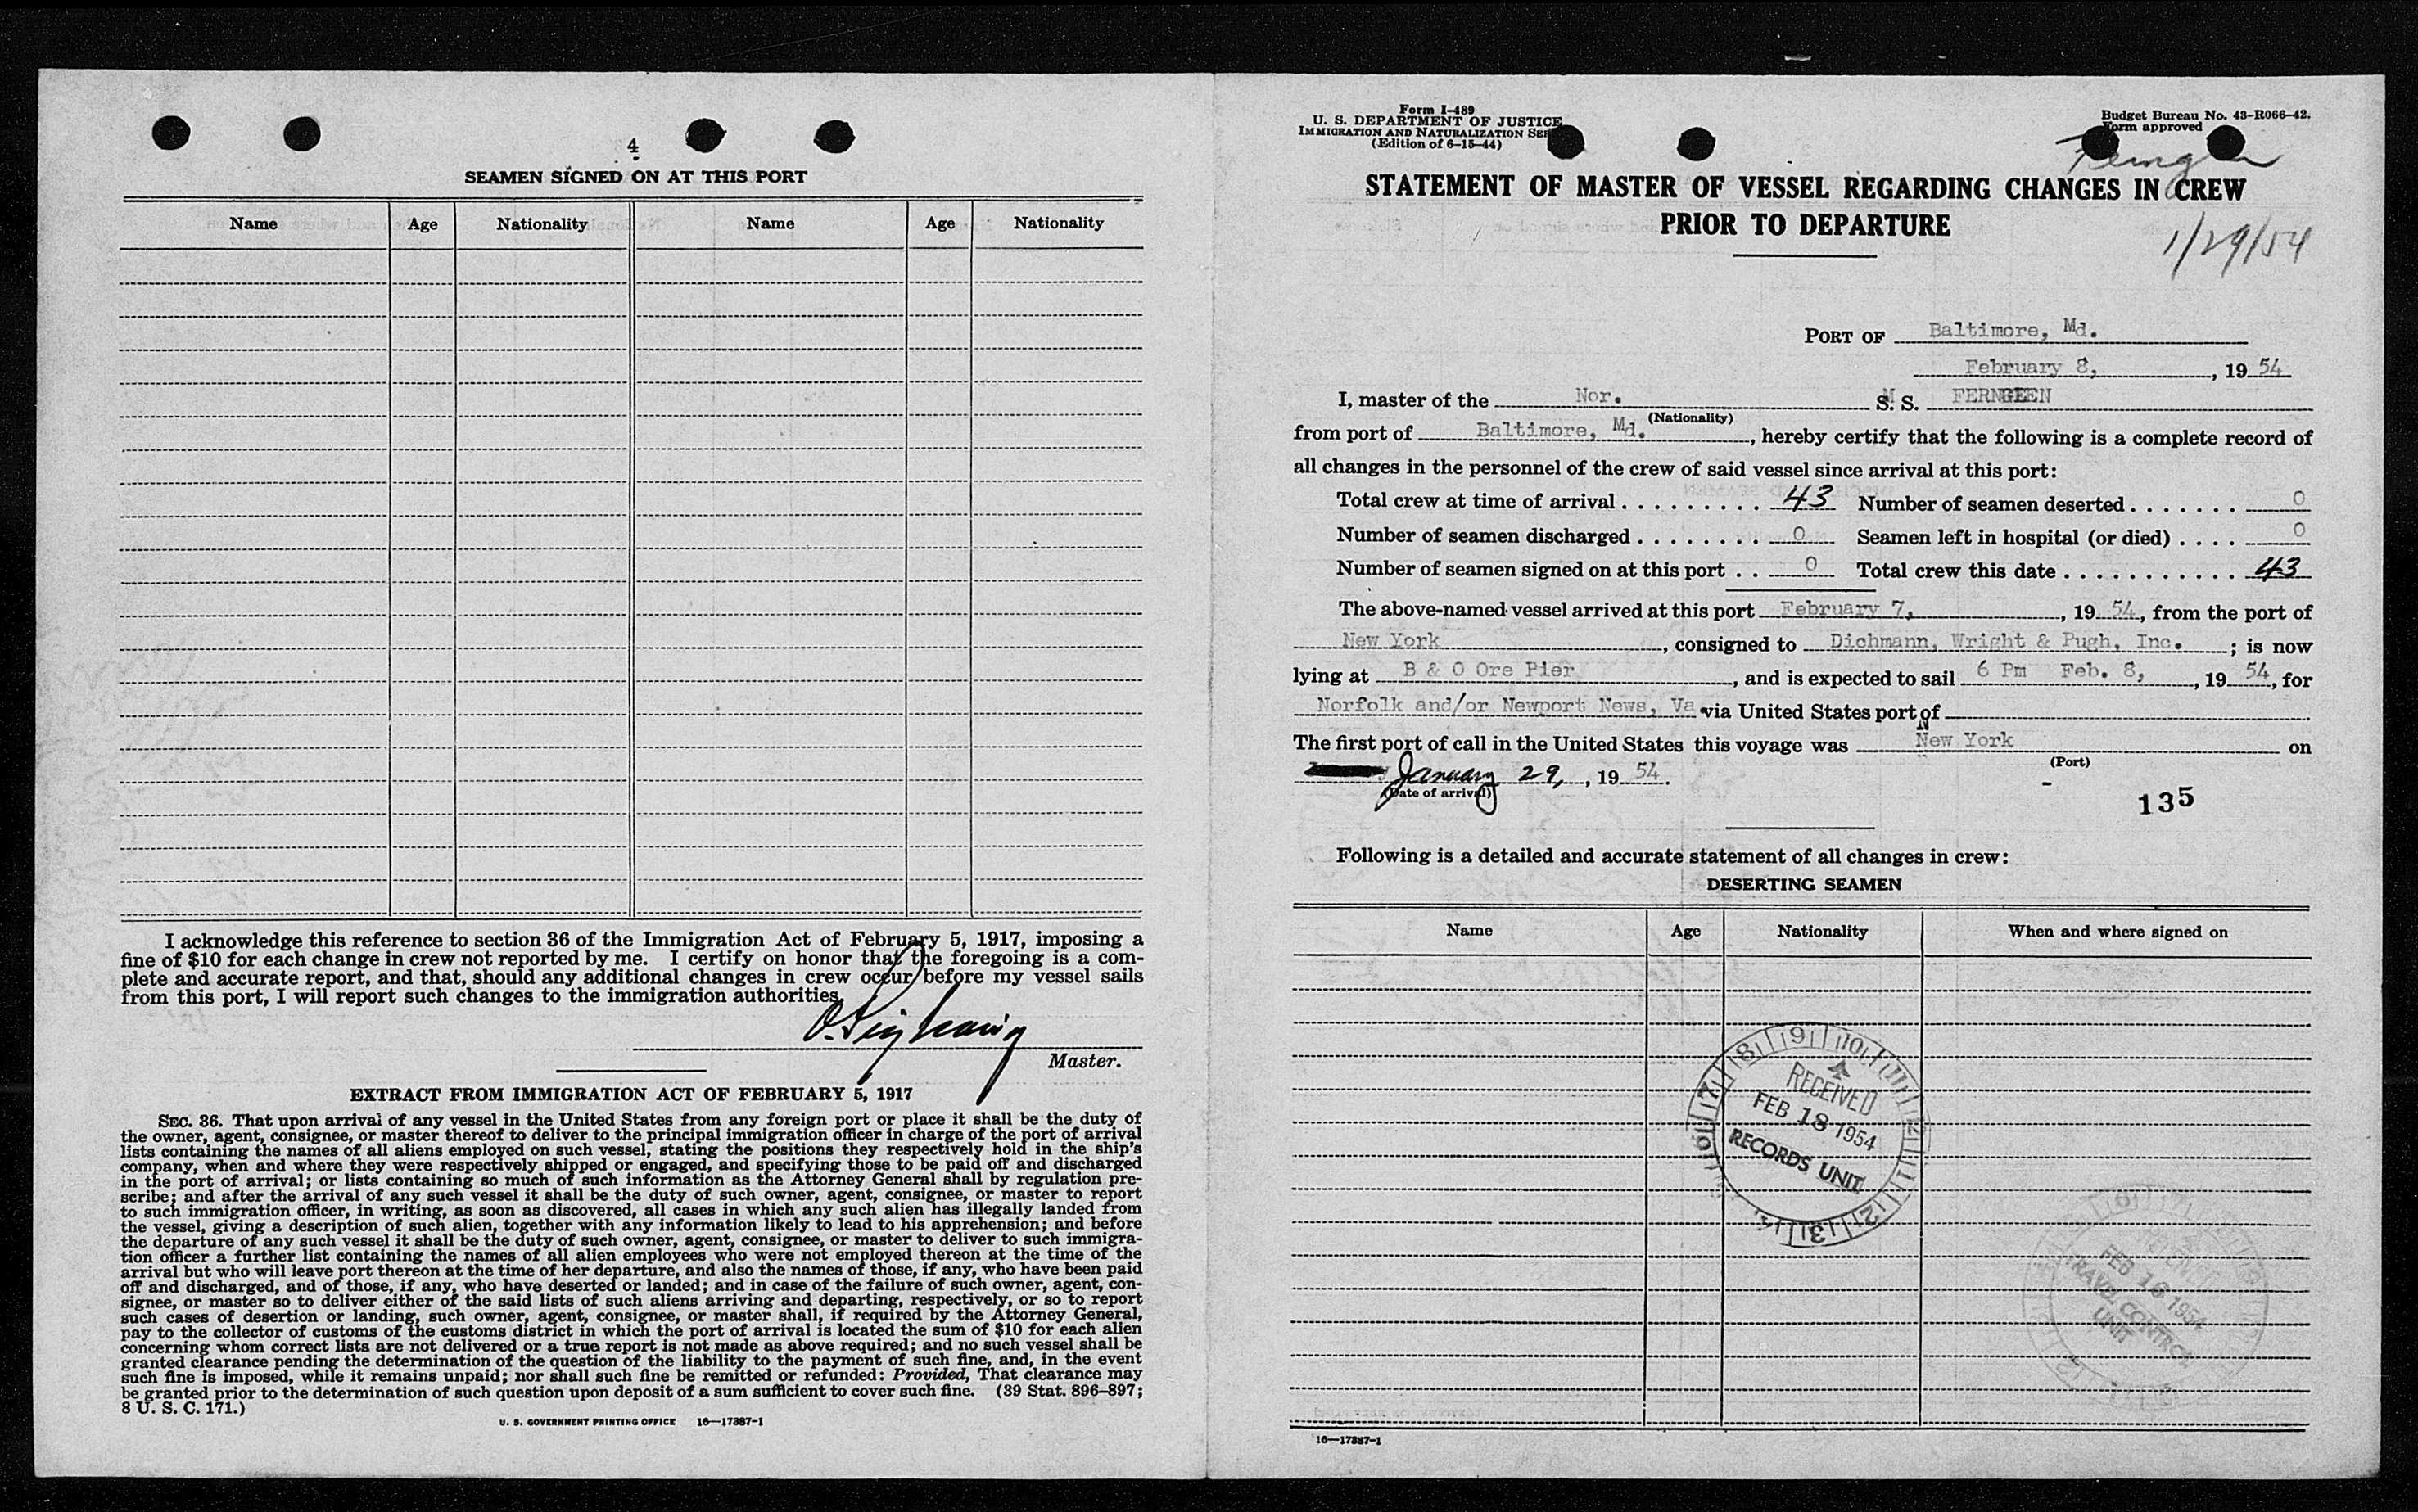 4
SEAMEN SIGNED ON AT THIS PORT
Name Age Nationality Name Age Nationality
I acknowledge this reference to section 36 of the Immigration Act of February 5, 1917, imposing a
fine of $10 for each change in crew not reported by me. I certify on honor that the foregoing is a com-
plete and accurate report, and that, should any additional changes in crew occur before my vessel sails
from this port, I will report such changes to the immigration authorities.
Master.
EXTRACT FROM IMMIGRATION ACT OF FEBRUARY 5, 1917
SEC. 36. That upon arrival of any vessel in the United States from any foreign port or place it shall be the duty of
the owner, agent, consignee, or master thereof to deliver to the principal immigration officer in charge of the port of arrival
lists containing the names of all aliens employed on such vessel, stating the positions they respectively hold in the ship's
company, when and where they were respectively shipped or engaged, and specifying those to be paid off and discharged
in the port of arrival; or lists containing so much of such information as the Attorney General shall by regulation pre-
scribe; and after the arrival of any such vessel it shall be the duty of such owner, agent, consignee, or master to report
to such immigration officer, in writing, as soon as discovered, all cases in which any such alien has illegally landed from
the vessel, giving a description of such alien, together with any information likely to lead to his apprehension; and before
the departure of any such vessel it shall be the duty of such owner, agent, consignee, or master to deliver to such immigra-
tion officer a further list containing the names of all alien employees who were not employed thereon at the time of the
arrival but who will leave port thereon at the time of her departure, and also the names of those, if any, who have been paid
off and discharged, and of those, if any, who have deserted or landed; and in case of the failure of such owner, agent, con-
signee, or master so to deliver either of the said lists of such aliens arriving and departing, respectively, or so to report
such cases of desertion or landing, such owner, agent, consignee, or master shall, if required by the Attorney General,
pay to the collector of customs of the customs district in which the port of arrival is located the sum of $10 for each alien
concerning whom correct lists are not delivered or a true report is not made as above required; and no such vessel shall be
granted clearance pending the determination of the question of the liability to the payment of such fine, and, in the event
such fine is imposed, while it remains unpaid; nor shall such fine be remitted or refunded: Provided, That clearance may
be granted prior to the determination of such question upon deposit of a sum sufficient to cover such fine. (39 Stat. 896–897;
8 U. S. C. 171.)
U. S. GOVERNMENT PRINTING OFFICE 16—17387-1
Form I-489
U. S. DEPARTMENT OF JUSTICE
IMMIGRATION AND NATURALIZATION
(Edition of 6-15-44)
Budget Bureau No. 43-R066-42.
Form approved
STATEMENT OF MASTER OF VESSEL REGARDING CHANGES IN CREW
PRIOR TO DEPARTURE
1/29/54
PORT OF Baltimore, Md.
February 8, , 19 54
I, master of the Nor. M S. S.
(Nationality)
from port of Baltimore, Md. , hereby certify that the following is a complete record of
all changes in the personnel of the crew of said vessel since arrival at this port:
Total crew at time of arrival . . . . . . . . . 43 Number of seamen deserted . . . . . . . 0
Number of seamen discharged . . . . . . . . 0 Seamen left in hospital (or died) . . . . 0
Number of seamen signed on at this port . . 0 Total crew this date . . . . . . . . . . . 43
The above-named vessel arrived at this port February 7, , 19 54, from the port of
New York , consigned to Dichmann, Wright & Pugh, Inc. ; is now
lying at B & O Ore Pier , and is expected to sail 6 Pm Feb. 8, , 19 54, for
Norfolk and/or Newport News, Va. via United States port of
The first port of call in the United States this voyage was New York on
(Port)
January 29, , 19 54.
(Date of arrival)
135
Following is a detailed and accurate statement of all changes in crew:
DESERTING SEAMEN
Name Age Nationality When and where signed on
RECEIVED
FEB 18 1954
RECORDS UNIT
FEB 16 1954
TRAVEL CONTROL
UNIT
16—17387-1